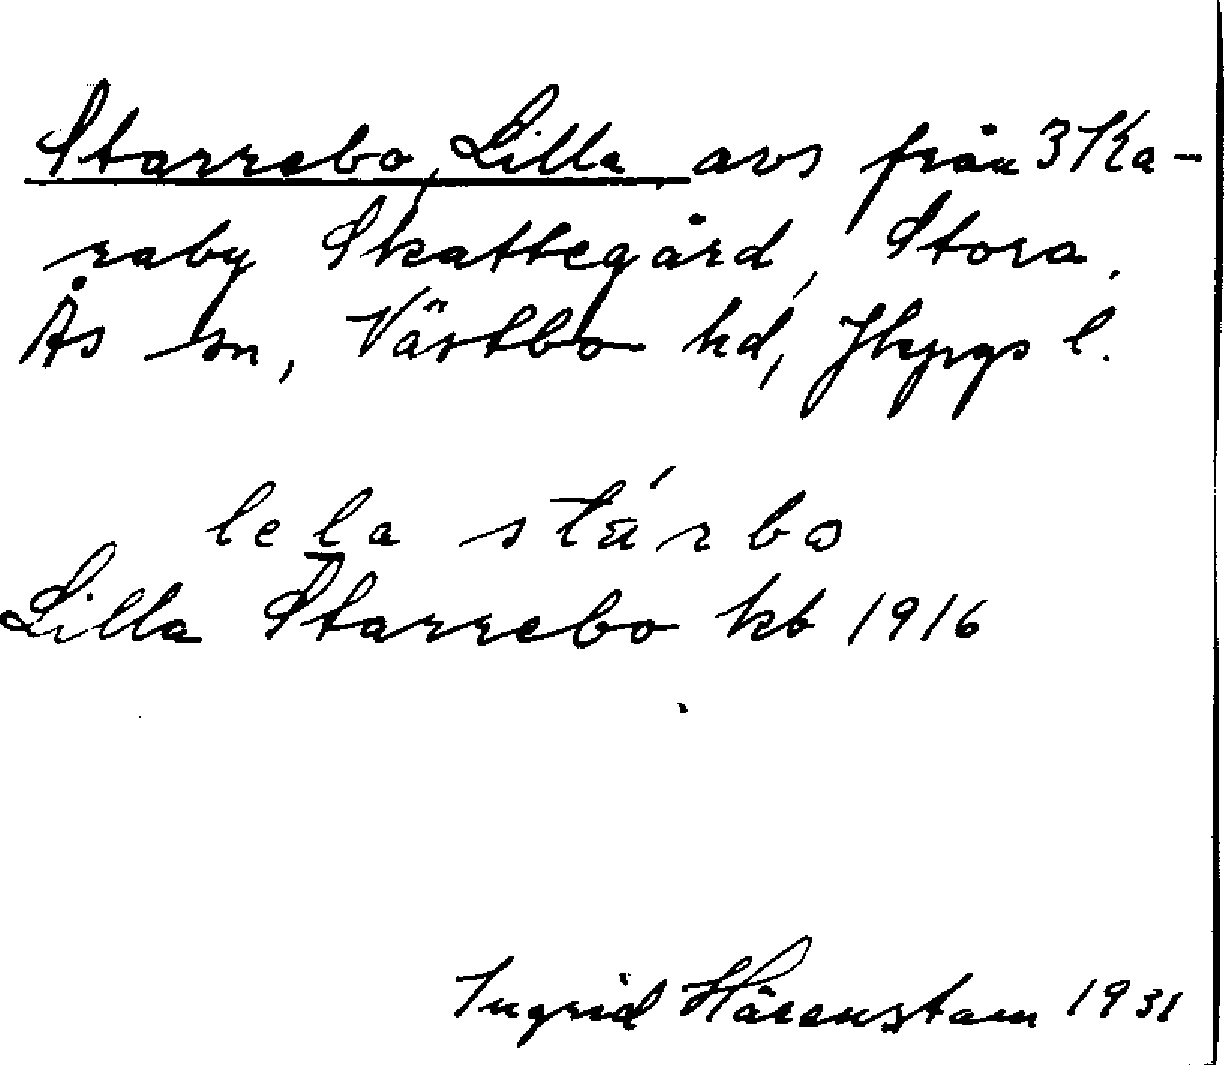 Starrebo, Lilla avs från 3 Ka-
raby Skattegård, Stora,
Ås sn, Västbo hd, Jkpgs l.
lela stárbo
Lilla Starrebo kb 1916
Ingrid Härenstam 1931